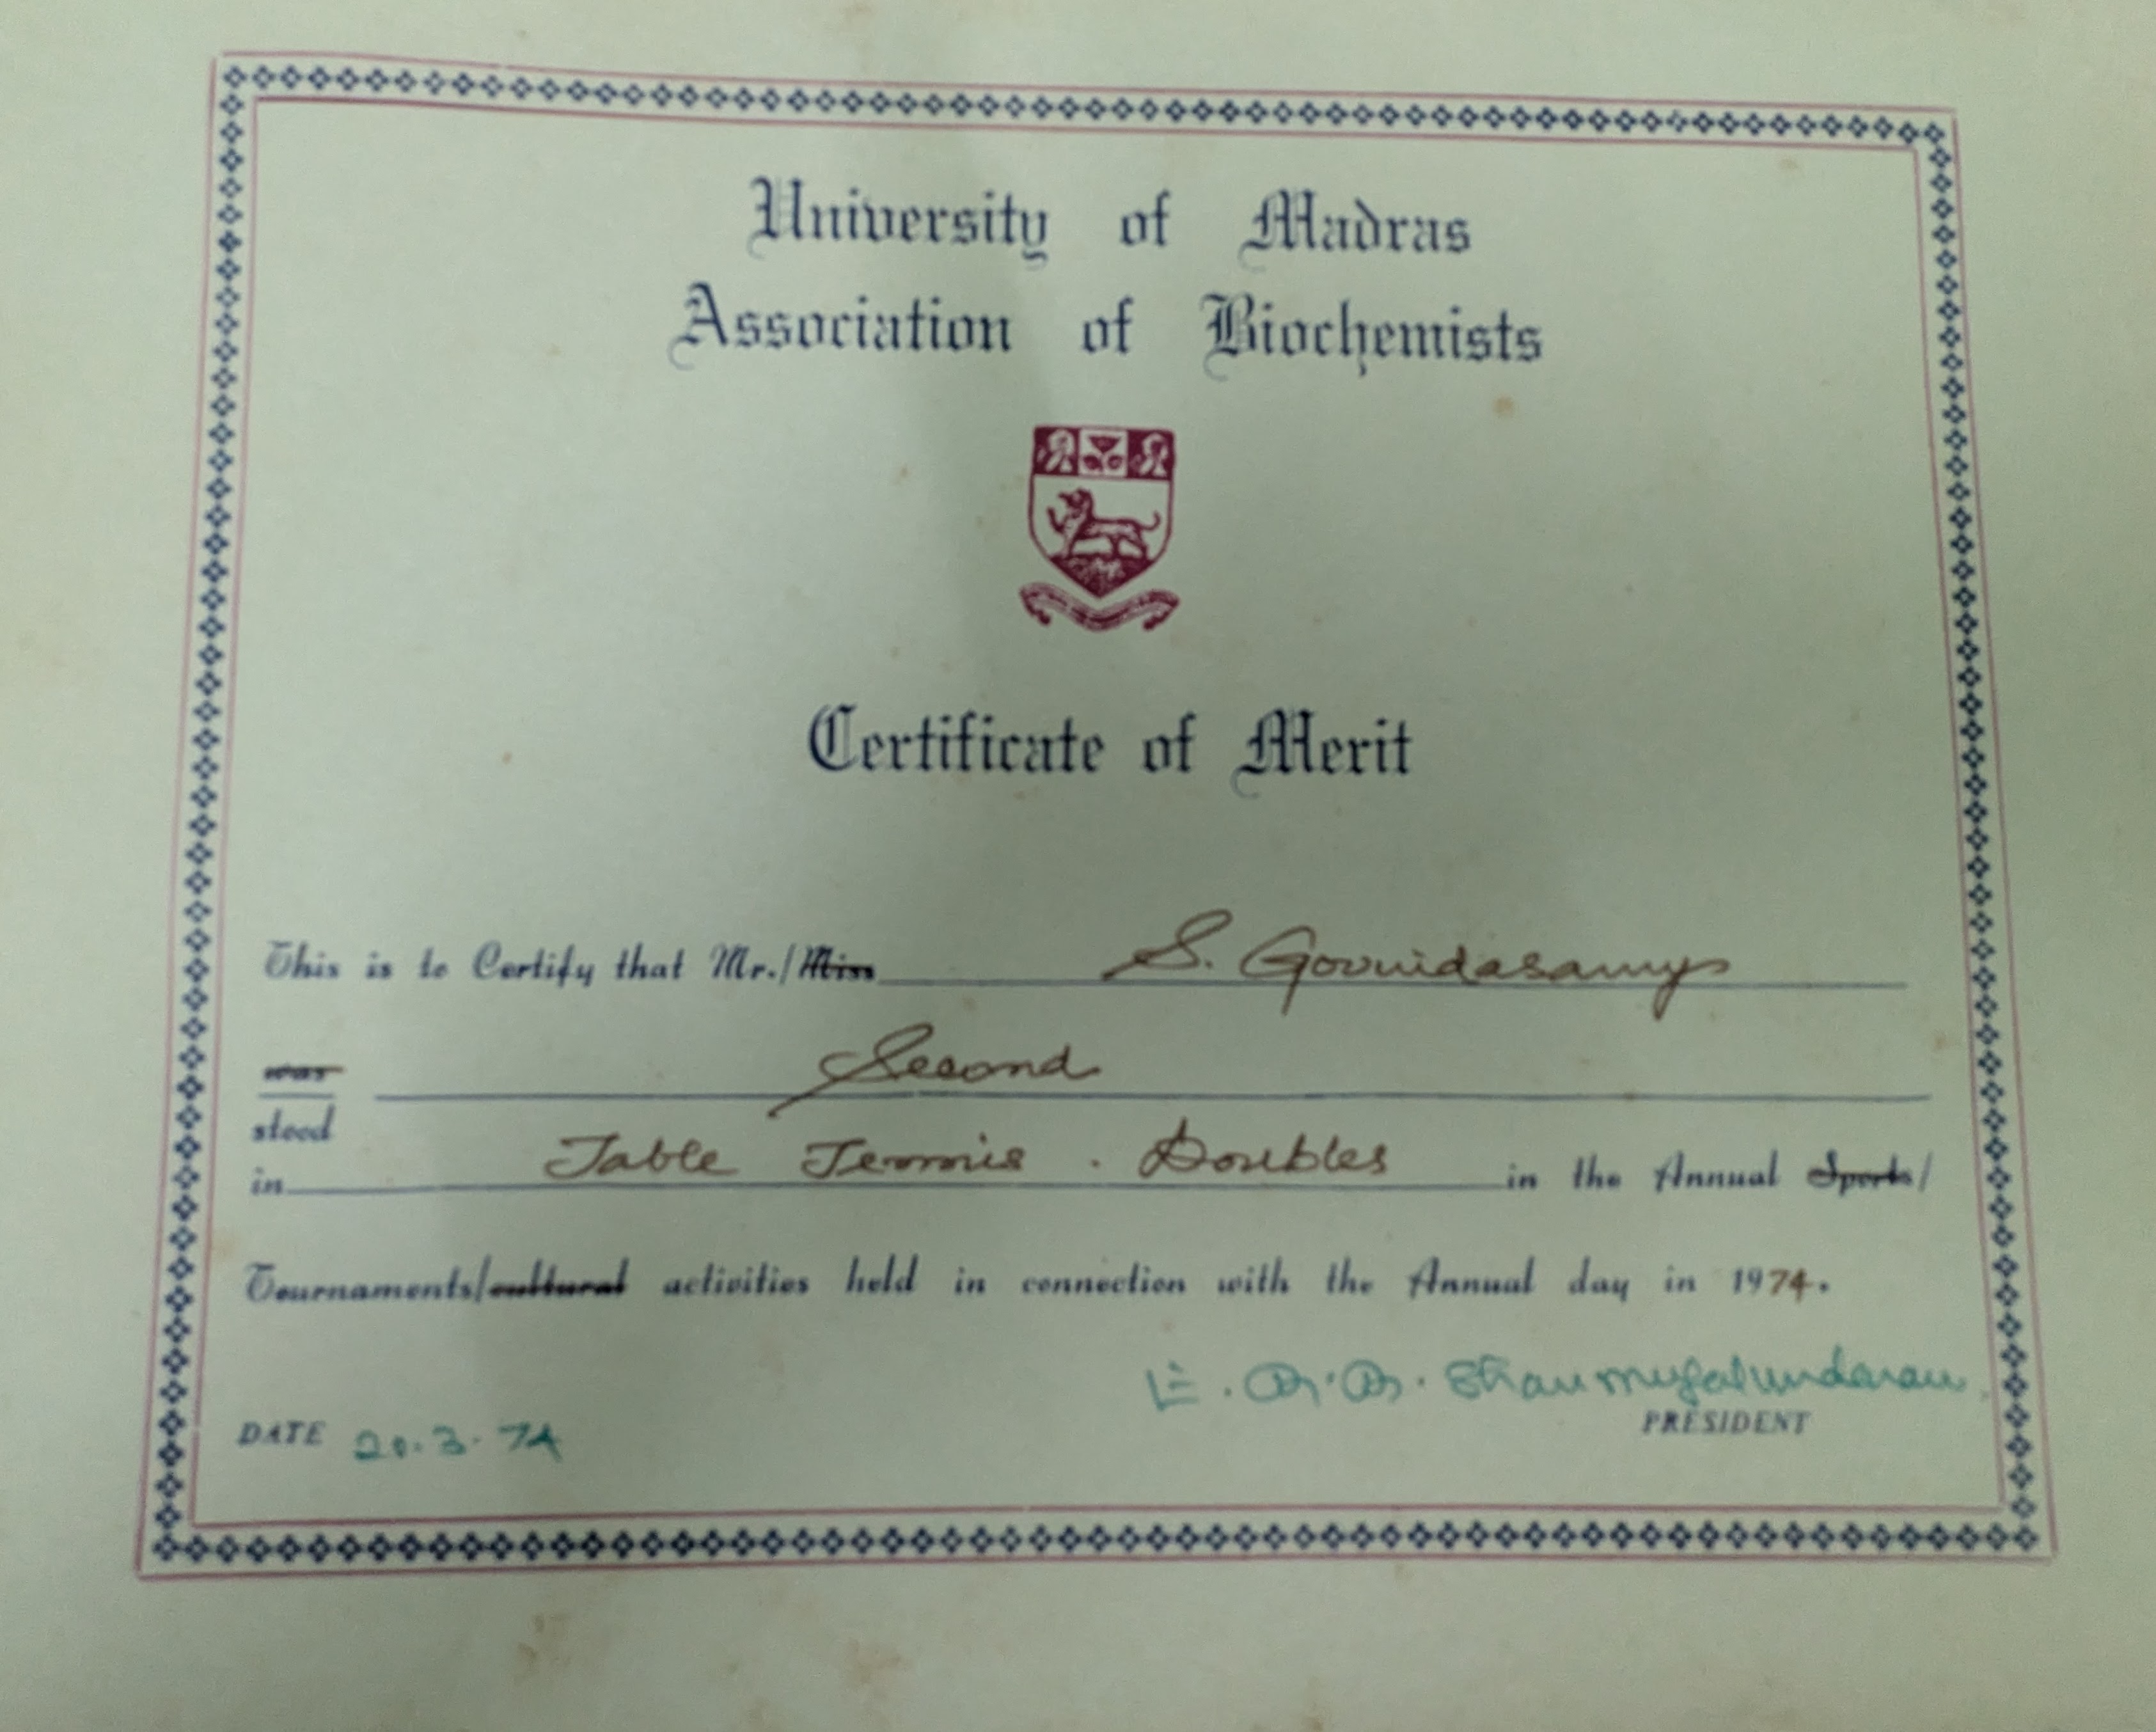 University of Madras
Association of Biochemists
Certificate of Merit
This is to Certify that Mr./Miss S. Govindasamy
was Second
stood
in Table Tennis . Doubles in the Annual Sports/
Tournaments/cultural activities held in connection with the Annual day in 1974.
Shanmugasundaram
PRESIDENT
DATE 20.3.74